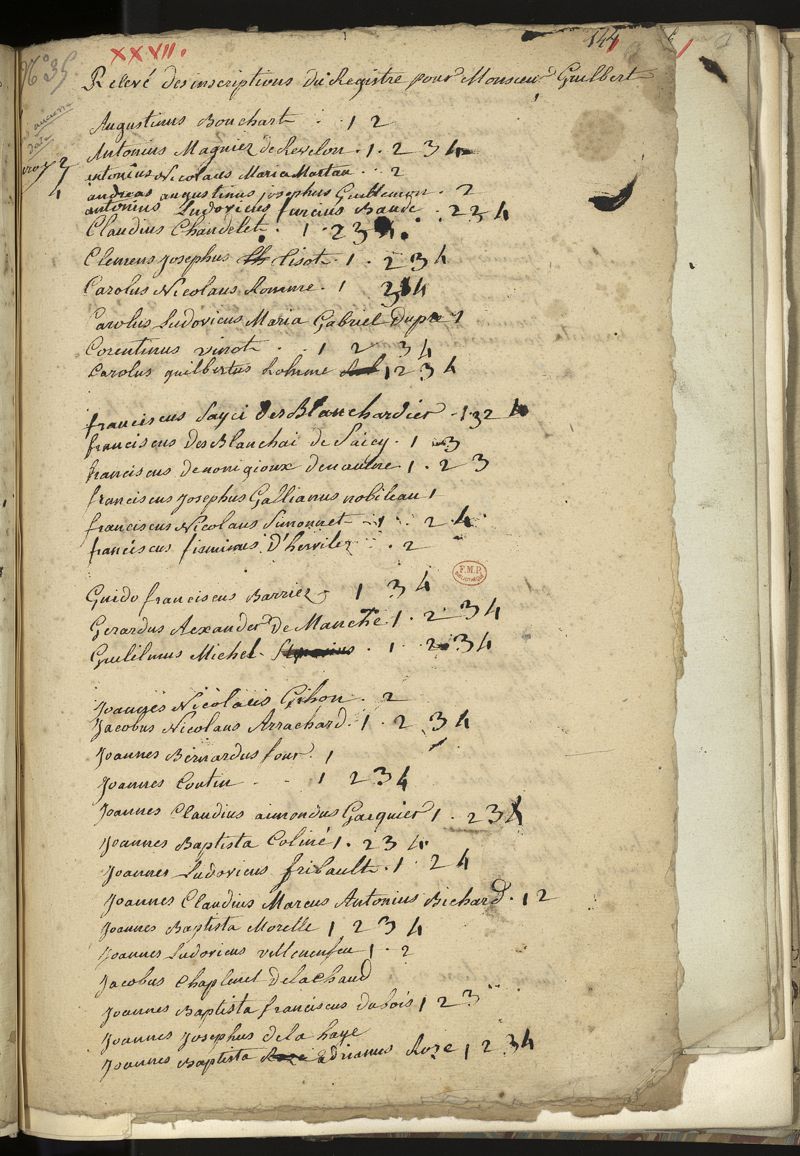 XXVII.
144
N° 35
Relevé des inscriptions du Registre pour Monsieur Guilbert
aucune
date
Augustinus Bouchart . 1 2
Antonius Magniez de Revelon . 1 . 2 3 4
antonius Nicolaus Maria Martau . . 2
andreas augustinus josephus Guillemon . 2
antonius Ludovicus furcius Baude . 2 3 4
Claudius Chandelet . 1 . 2 3 4 .
Clemens Josephus Tisot . 1 . 2 3 4
Carolus Nicolaus Romme . 1 2 3 4
Carolus Ludovicus Maria Gabriel Dupré 1
Corentinus vinot . . 1 2 3 4
Carolus guilbertus Lohmme 1 2 3 4
franciscus Sayci des Blanchardier . 1 3 2 4
franciscus des Blanchai de Saicy . 1 3
franciscus denonigioux denautre 1 . 2 3
franciscus josephus Gallianus nobileau 1
franciscus Nicolaus Simonnet . 1 . 2 4
franciscus firminus D'hervilez . 2
F.M.P.
BIBLIOTHÈQUE
Guido franciscus Barriez 1 3 4
Gerardus Alexander De Manche 1 . 2 3 4
Guililmus Michel . 1 2 3 4
Joannes Nicolaus Gihon . 2
Jacobus Nicolaus Arrachard . 1 . 2 3 4
Joannes Bernardus four . 1
Joannes Coutin . . 1 2 3 4
Joannes Claudius aimondus Gacquier 1 . 2 3 4
Joannes Baptista Coliné 1 . 2 3 4
Joannes Ludovicus fribault . 1 2 4
Joannes Claudius Marcus Antonius Bichard . 1 2
Joannes Baptista Morelle 1 2 3 4
Joannes Ludovicus villeneufeu 1 . 2
Jacobus Chapluet delachaud
Joannes Baptista franciscus dubois 1 2 3
Joannes Josephus de la haye
Joannes Baptista adrianus Roze 1 2 3 4